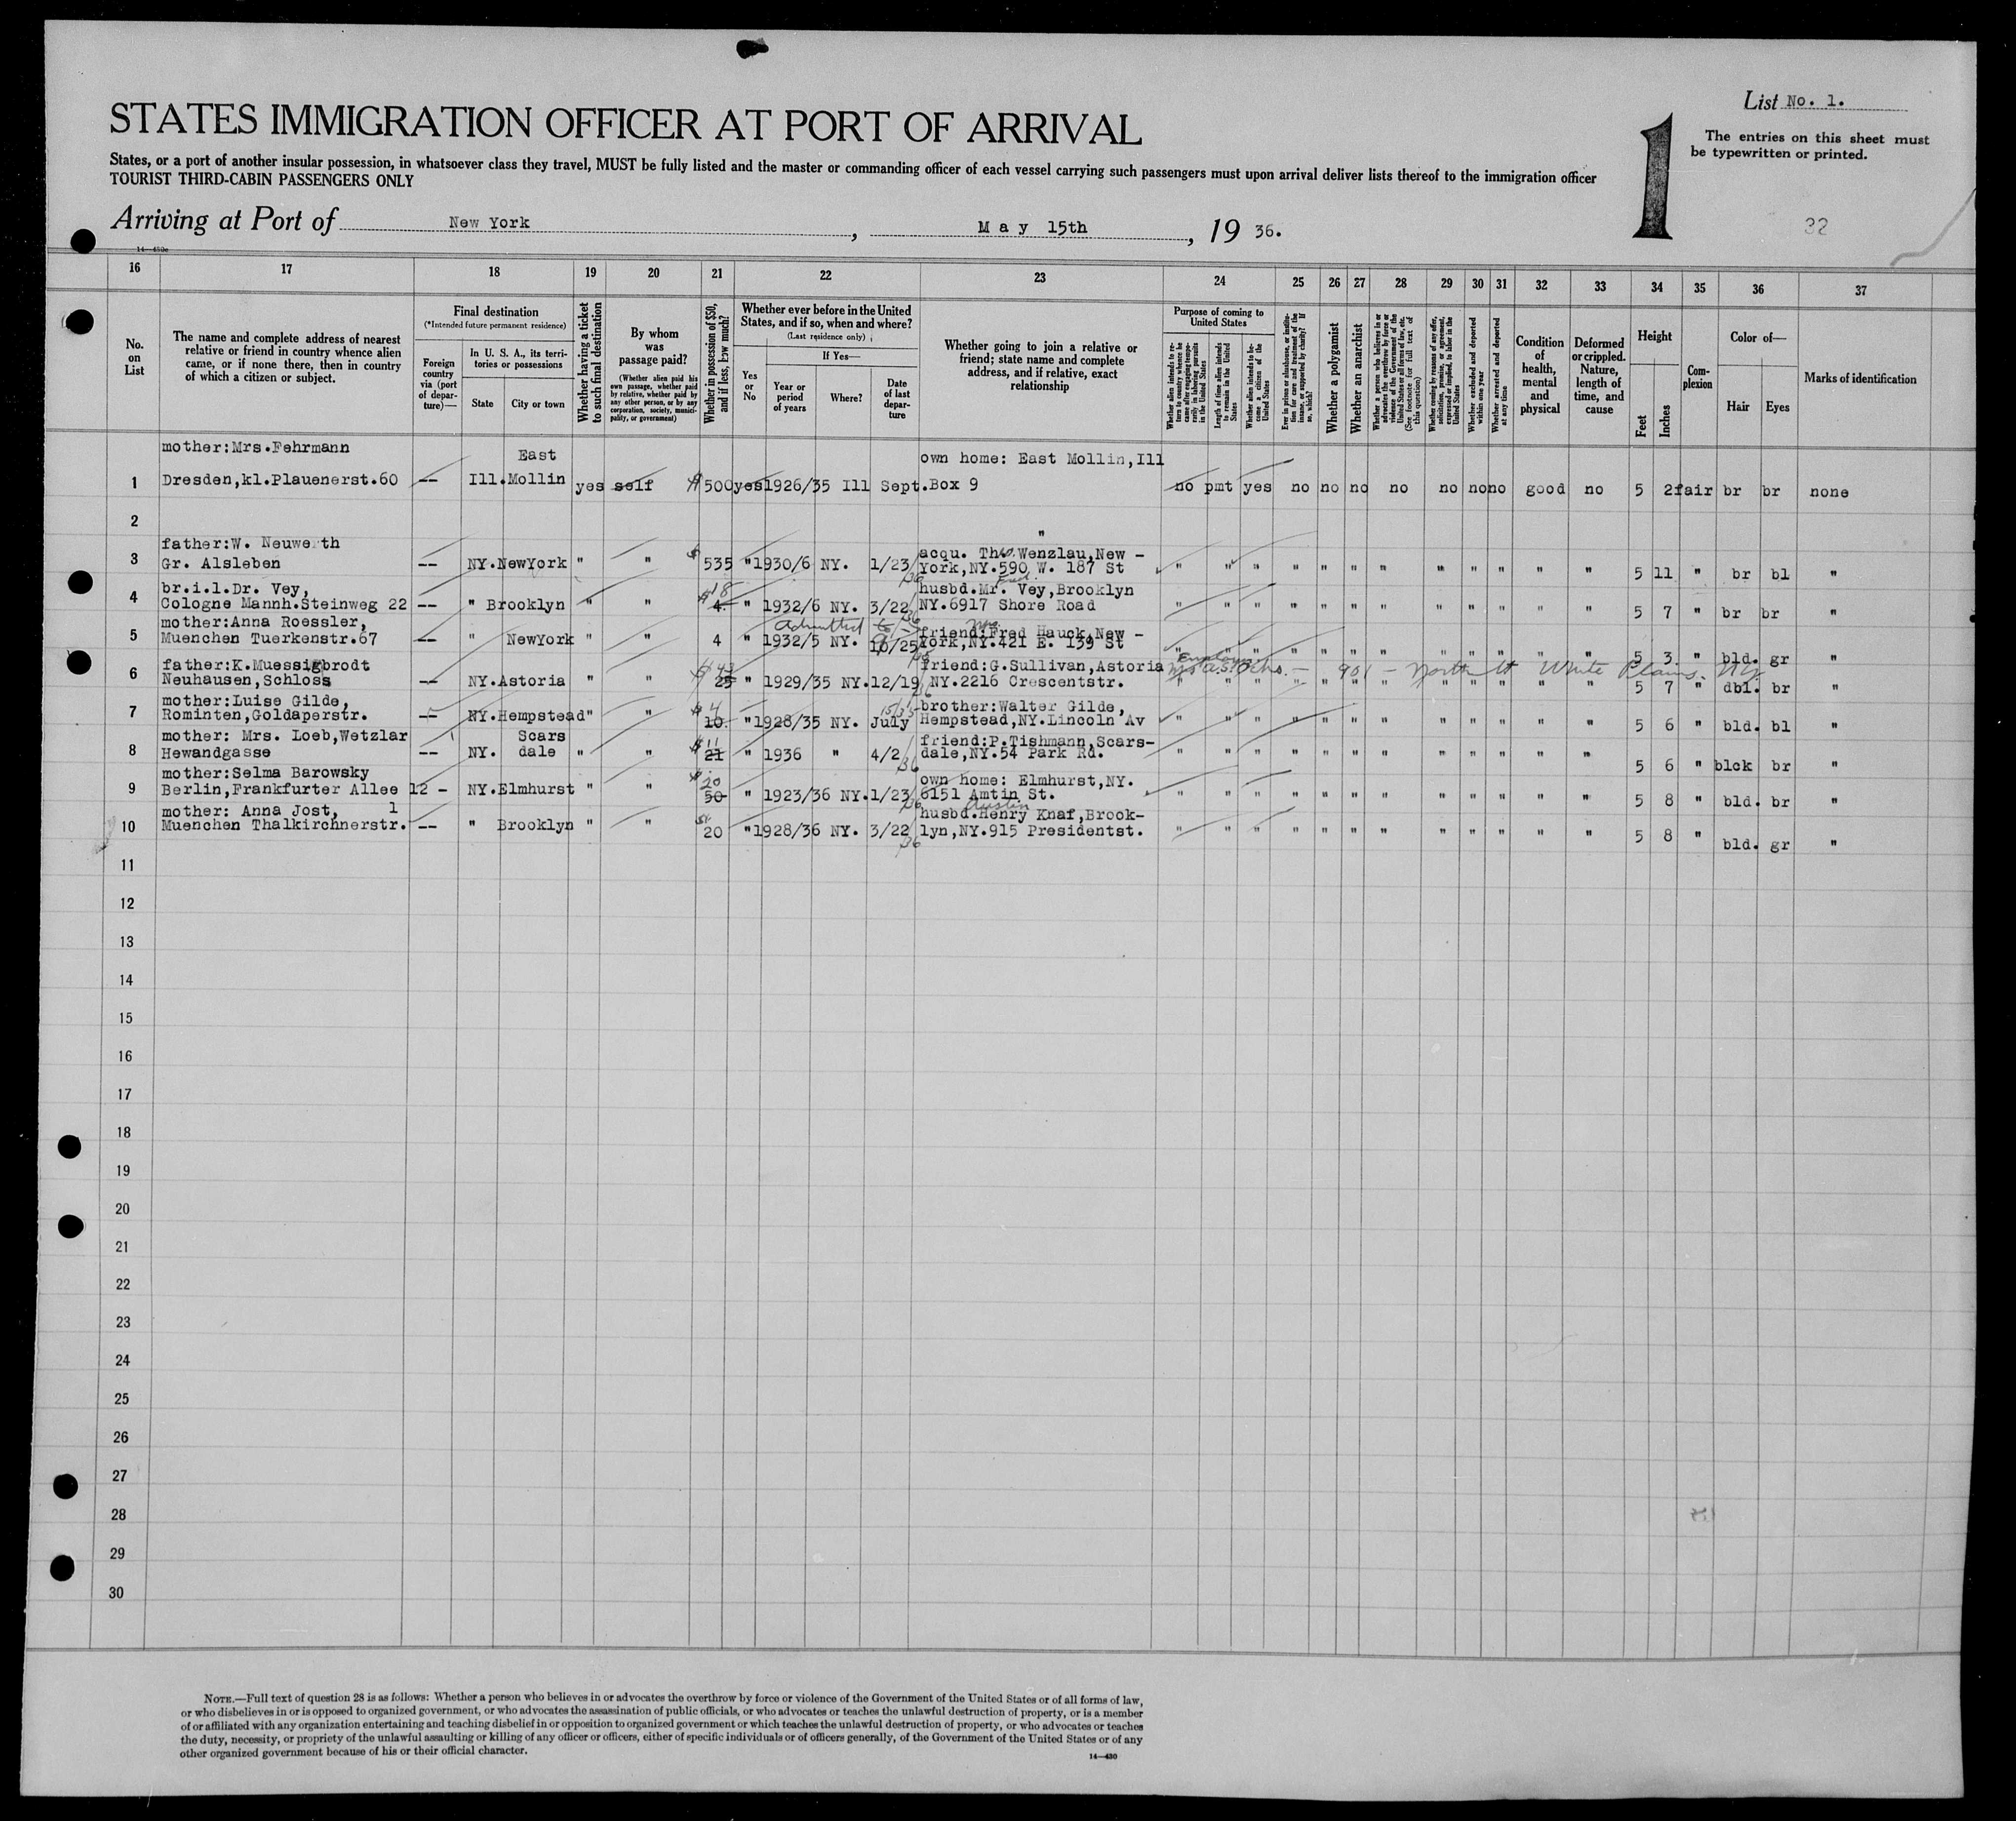 List No. 1.
The entries on this sheet must
be typewritten or printed.
1
STATES IMMIGRATION OFFICER AT PORT OF ARRIVAL
States, or a port of another insular possession, in whatsoever class they travel, MUST be fully listed and the master or commanding officer of each vessel carrying such passengers must upon arrival deliver lists thereof to the immigration officer
TOURIST THIRD-CABIN PASSENGERS ONLY
Arriving at Port of New York, May 15th, 19 36.
32
16 17 18 19 20 21 22 23 24 25 26 27 28 29 30 31 32 33 34 35 36 37
No. on List
The name and complete address of nearest
relative or friend in country whence alien
came, or if none there, then in country
of which a citizen or subject.
Final destination
(*Intended future permanent residence)
Foreign country via (port of departure)—
In U. S. A., its territories or possessions
State City or town
Whether having a ticket to such final destination
By whom was passage paid?
(Whether alien paid his own passage, whether paid by relative, whether paid by any other person, or by any corporation, society, municipality, or government)
Whether in possession of $50, and if less, how much?
Whether ever before in the United
States, and if so, when and where?
(Last residence only)
Yes or No
If Yes—
Year or period of years
Where?
Date of last departure
Whether going to join a relative or
friend; state name and complete
address, and if relative, exact
relationship
Purpose of coming to United States
Length of time alien intends to remain in the United States
Whether alien intends to become a citizen of the United States
Whether a polygamist
Whether an anarchist
Whether excluded and deported within one year
Whether arrested and deported at any time
Condition of health, mental and physical
Deformed or crippled. Nature, length of time, and cause
Height
Feet Inches
Complexion
Color of—
Hair Eyes
Marks of identification
mother:Mrs.Fehrmann East own home: East Mollin,Ill
1 Dresden,kl.Plauenerst.60 -- Ill.Mollin yes self $ 500 yes 1926/35 Ill Sept. Box 9 no pmt yes no no no no no no no good no 5 2 fair br br none
2 "
father:W. Neuwerth acqu. Theo.Wenzlau,New -
3 Gr. Alsleben -- NY.NewYork " " $ 535 " 1930/6 NY. 1/23/36 York,NY.590 W. 187 St " " " " " " " " " " " " 5 11 " br bl "
br.i.l.Dr. Vey, $18 husbd.Mr. Fred. Vey,Brooklyn
4 Cologne Mannh.Steinweg 22 -- " Brooklyn " " 4. " 1932/6 NY. 3/22/36 NY.6917 Shore Road " " " " " " " " " " " " 5 7 " br br "
mother:Anna Roessler, Admitted to friend: Mrs. Fred Hauck,New -
5 Muenchen Tuerkenstr.67 -- " NewYork " " 4 " 1932/5 NY. 10/25/35 York,NY.421 E. 139 St " " " " " " " " " " " " 5 3 " bld. gr "
father:K.Muessigbrodt $43 friend:G.Sullivan,Astoria Employer Mrs. A.S. Ochs. - 901 - North St White Plains. NY
6 Neuhausen,Schloss -- NY.Astoria " " 25 " 1929/35 NY.12/19 NY.2216 Crescentstr. " " " " " " " " " " " " 5 7 " dbl. br "
mother:Luise Gilde, $4 15/35 brother:Walter Gilde,
7 Rominten,Goldaperstr. -- NY.Hempstead " " 10. " 1928/35 NY. July Hempstead,NY.Lincoln Av " " " " " " " " " " " " 5 6 " bld. bl "
mother: Mrs. Loeb,Wetzlar Scars $11 friend:P.Tishmann,Scars-
8 Hewandgasse -- NY. dale " " 21 " 1936 " 4/2/36 dale,NY.54 Park Rd. " " " " " " " " " " " " 5 6 " blck br "
mother:Selma Barowsky $20 own home: Elmhurst,NY.
9 Berlin,Frankfurter Allee 12 - NY.Elmhurst " " 50 " 1923/36 NY.1/23/36 6151 Amtin St. Austin " " " " " " " " " " " " 5 8 " bld. br "
mother: Anna Jost, 1 husbd.Henry Knaf,Brook-
10 Muenchen Thalkirchnerstr. -- " Brooklyn " " $ 20 " 1928/36 NY. 3/22/36 lyn,NY.915 Presidentst. " " " " " " " " " " " " 5 8 " bld. gr "
11
12
13
14
15
16
17
18
19
20
21
22
23
24
25
26
27
28
29
30
NOTE.—Full text of question 28 is as follows: Whether a person who believes in or advocates the overthrow by force or violence of the Government of the United States or of all forms of law,
or who disbelieves in or is opposed to organized government, or who advocates the assassination of public officials, or who advocates or teaches the unlawful destruction of property, or is a member
of or affiliated with any organization entertaining and teaching disbelief in or opposition to organized government or which teaches the unlawful destruction of property, or who advocates or teaches
the duty, necessity, or propriety of the unlawful assaulting or killing of any officer or officers, either of specific individuals or of officers generally, of the Government of the United States or of any
other organized government because of his or their official character.
14—430